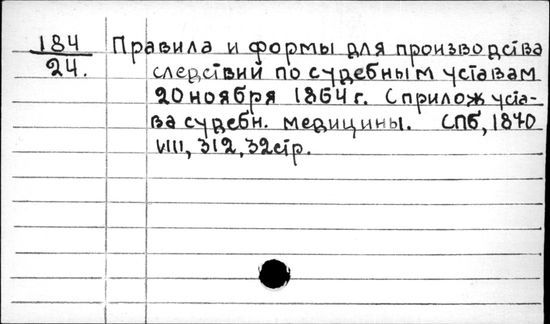 184 Правила и формы для производства
24. следствий по судебным уставам
20 ноября 1864 г. С прилож уста-
ва судебн. медицины. СПб, 1870
VIII, 312, 32 стр.